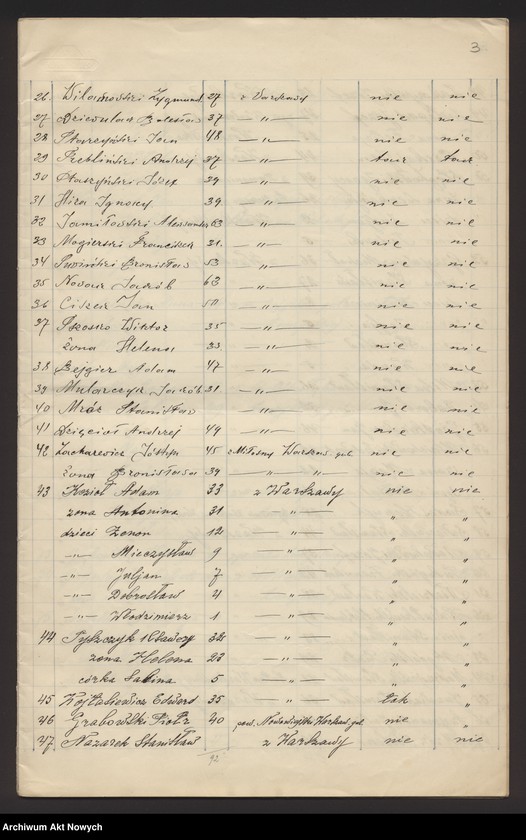 3
26 Wilamowski Zygmunt 27 z Warszawy nie nie
27 Dziewulak Bolesław 37 — „ — nie nie
28 Starzyński Jan 48 — „ — nie nie
29 Andrzej 37 — „ — tak tak
30 Staszyński Józef 29 — „ — nie nie
31 Ignacy 39 — „ — nie nie
32 Aleksander 63 — „ — nie nie
33 Magierski Franciszek 31 — „ — nie nie
34 Bronisław 53 — „ — nie nie
35 Nowak Jakób 63 — „ — nie nie
36 Jan 50 — „ — nie nie
37 Wiktor 35 — „ — nie nie
żona Helena 33 — „ — nie nie
38 Bejgier Adam 47 — „ — nie nie
39 Mularczyk Jakób 31 — „ — nie nie
40 Mróz Stanisław — „ — nie nie
41 Dzięcioł Andrzej 49 — „ — nie nie
42 Zacharewicz 45 Warszaw. gub. nie nie
żona Bronisława 39 — „ — „ nie nie
43 Kozioł Adam 33 z Warszawy nie nie
żona Antonina 31 — „ — „ „
dzieci Zenon 12 — „ — „ „
— „ — Mieczysław 9 — „ — „ „
— „ — Juljan 7 — „ — „ „
— „ — Dobrosław 4 — „ — „ „
— „ — Włodzimierz 1 — „ — „ „
44 32 — „ — „ „
żona Helena 23 — „ — „ „
córka Sabina 5 — „ — „ „
45 Edward 35 — „ — tak „
46 Grabowski Piotr 40 pow. Warszaw. gub. nie „
47 Nazarek Stanisław z Warszawy nie nie
92
Archiwum Akt Nowych